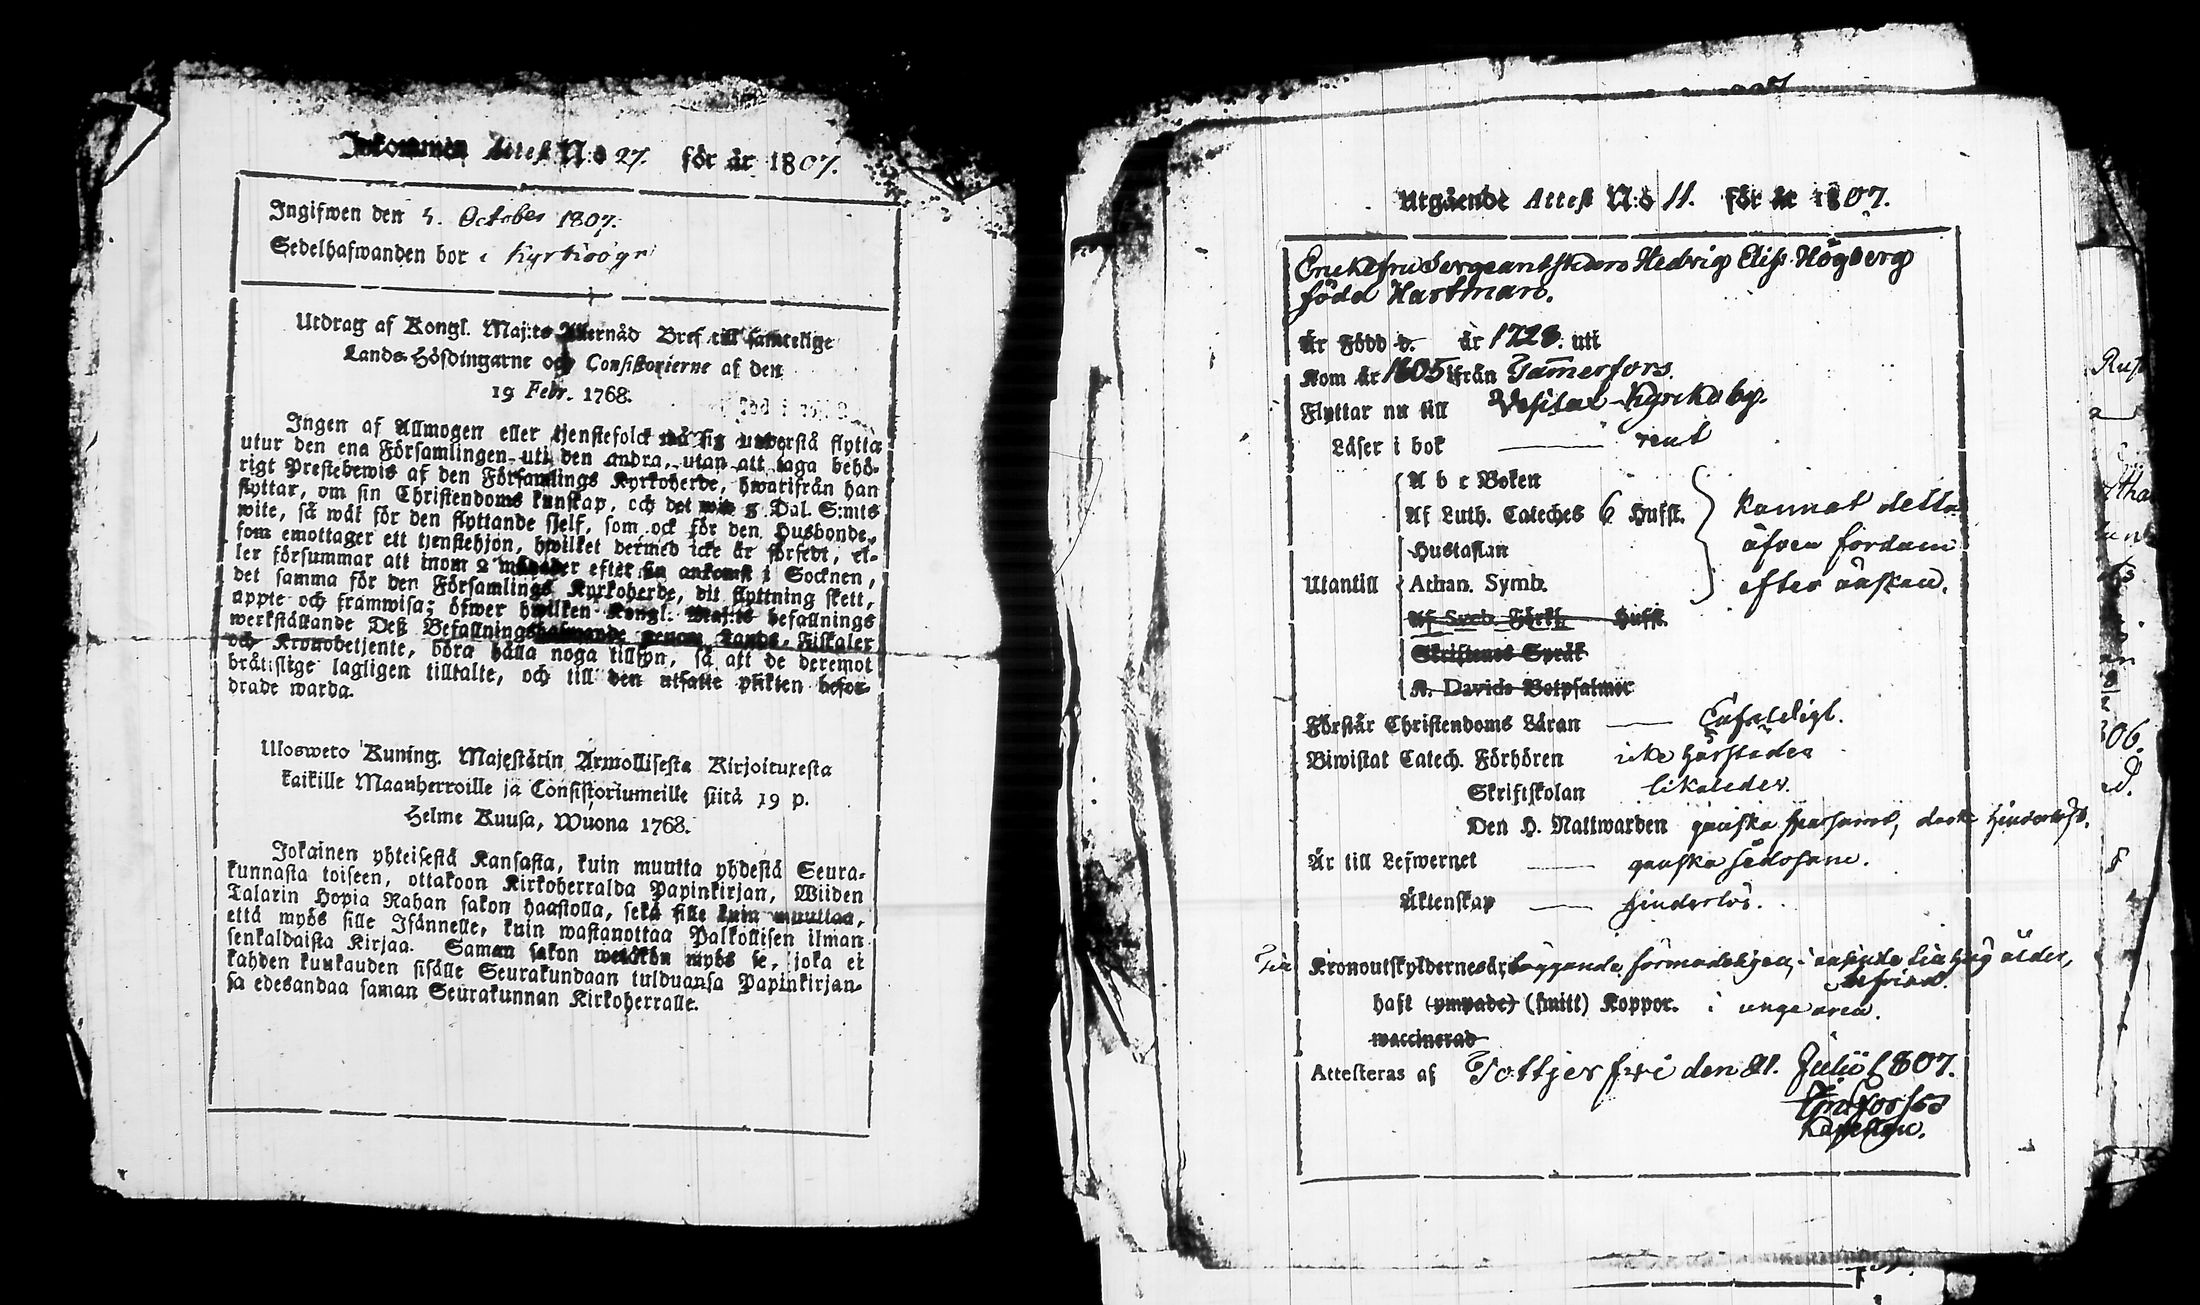 Inkommen Attest N:o 27. för år 1807.
Ingifwen den 5. October 1807.
Sedelhafwanden bor i Kyrkiogr
Utdrag af Kongl. Maj:ts Allernåd Bref till samtelige
Lands-Höfdingarne och Consistorierne af den
19 Febr. 1768.
Ingen af Allmogen eller tjenstefolck må sig understå flytta
utur den ena Församlingen uti den andra, utan att taga behö-
rigt Prestebewis af den Församlings Kyrkoherde, hwarifrån han
flyttar, om sin Christendoms kunskap, och det wid 5 Dal. S:mts
wite, så wäl för den flyttande sjelf, som ock för den Husbonde,
som emottager ett tjenstehjon, hwilket dermed icke är försedt, el-
ler försummar att inom 2 månader efter sin ankomst i Socknen,
det samma för den Församlings Kyrkoherde, dit flyttning skett,
uppte och framwisa; öfwer hwilken Kongl. Maj:ts befallnings
werkställande Deß Befallningshafwande genom Lands-Fiskaler
och Kronobetjente, böra hålla noga tillsyn, så att de deremot
bråtislige lagligen tilltalte, och till den utsatte plikten befor-
drade warda.
Ulosweto Kuning. Majestätin Armollisesta Kirjoituxesta
kaikille Maanherroille ja Consistoriumeille siitä 19 p.
Helme Kuusa, Wuona 1768.
Jokainen yhteisestä Kansasta, kuin muutta yhdestä Seura-
kunnasta toiseen, ottakoon Kirkoherralda Papinkirjan, Wiiden
Talarin Hopia Rahan sakon haastolla, sekä sille kuin muuttaa,
että myös sille Isännelle, kuin wastanottaa Palkollisen ilman
senkaldaista Kirjaa. Saman sakon wetäkön myös se, joka ei
kahden kuukauden sisälle Seurakundaan tulduansa Papinkirjan-
sa edesandaa saman Seurakunnan Kirkoherralle.
Utgående Attest N:o 11. för år 1807.
Enckefru Sergeantskan Hedvig Elis. Högberg
föda Hartman.
Är Född d. år 1728. uti
Kom år 1805 ifrån Tam̃erfors.
Flyttar nu till Vesilax Kyrckoby.
Läser i bok rent
A b c Boken
Af Luth. Cateches 6 Hufst.
Hustaflan
Utantill Athan. Symb.
Af Sveb. Förkl. Hufst.
Skriftenes Språk
K. Davids Botpsalmer
kunnat detta
äfven fordom
efter önskan.
Förstår Christendoms Läran Enfaldigt.
Biwistat Catech. Förhören icke härstädes
Skriftskolan likaledes.
Den H. Nattwarden ganska sparsamt, dock hinderlös.
Är till Lefwernet ganska sedosam.
Äktenskap hinderlös.
Kronoutskyldernes
haft (ympade) (smitt) Koppor. i unga åren.
waccinerad
Attesteras af Tottjerfwi den 21. Julii 1807.
Kapellan.